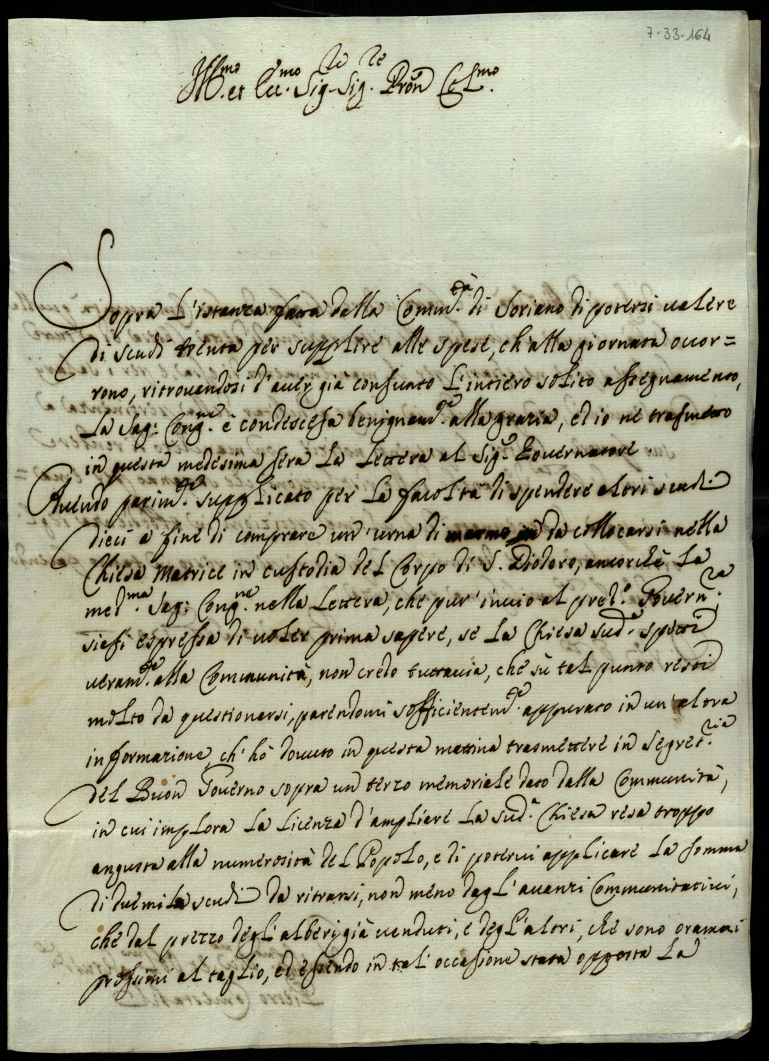 7-33-164
Ill.mo et Ecc.mo Sig.re Sig.re Pron Col.mo
Sopra L'istanza fatta dalla Comun.tà di Soriano di potersi valere
di scudi trenta per supplire alle spese, ch'alla giornata occor=
rono, ritrovandosi d'aver già consunto L'intiero solito assegnamento,
La Sag: Cong.ne è condescesa benignam.te alla grazia, ed io ne trasmetto
in questa medesima sera La Lettera al Sig.e Governatore.
Avendo parim.te supplicato per La facoltà di spendere altri scudi
dieci a fine di comprare un'urna di marmo da collocarsi nella
Chiesa Matrice in custodia del Corpo di S. Diodoro, ancorchè La
med.ma Sag: Cong.ne nella Lettera, che pur'invio al pred.o Govern.re
siasi espressa di voler prima sapere, se La Chiesa sud.a spetti
veram.te alla Communità, non credo tuttavia, che sù tal punto resti
molto da questionarsi, parendomi sofficientem.te appurato in un'altra
informazione, ch'hò dovuto in questa mattina trasmettere in Segret.ria
del Buon Governo sopra un terzo memoriale dato dalla Communità,
in cui implora La Licenza d'ampliare La sud.a Chiesa resa troppo
angusta alla numerosità del Popolo, e di potervi applicare La somma
di duemila scudi da ritrarsi, non meno dagl'avanzi Communitativi,
che dal prezzo degl'alberi già venduti, e degl'altri, che sono oramai
prossimi al taglio, ed essendo in tal'occasione stata opposta La